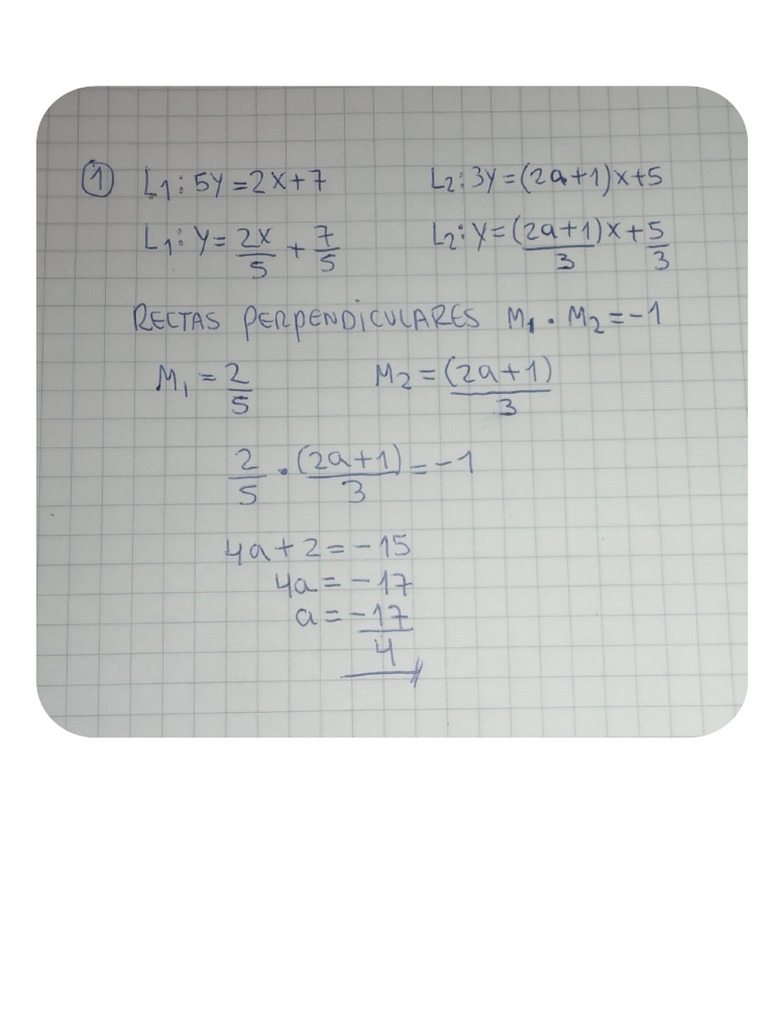 ① L1: 5y=2x+7 L2: 3y=(2a+1)x+5
L1: y=2x/5 + 7/5 L2: y=(2a+1)x/3 + 5/3
RECTAS PERPENDICULARES M1 · M2 = -1
M1 = 2/5 M2 = (2a+1)/3
2/5 · (2a+1)/3 = -1
4a+2 = -15
4a = -17
a = -17/4